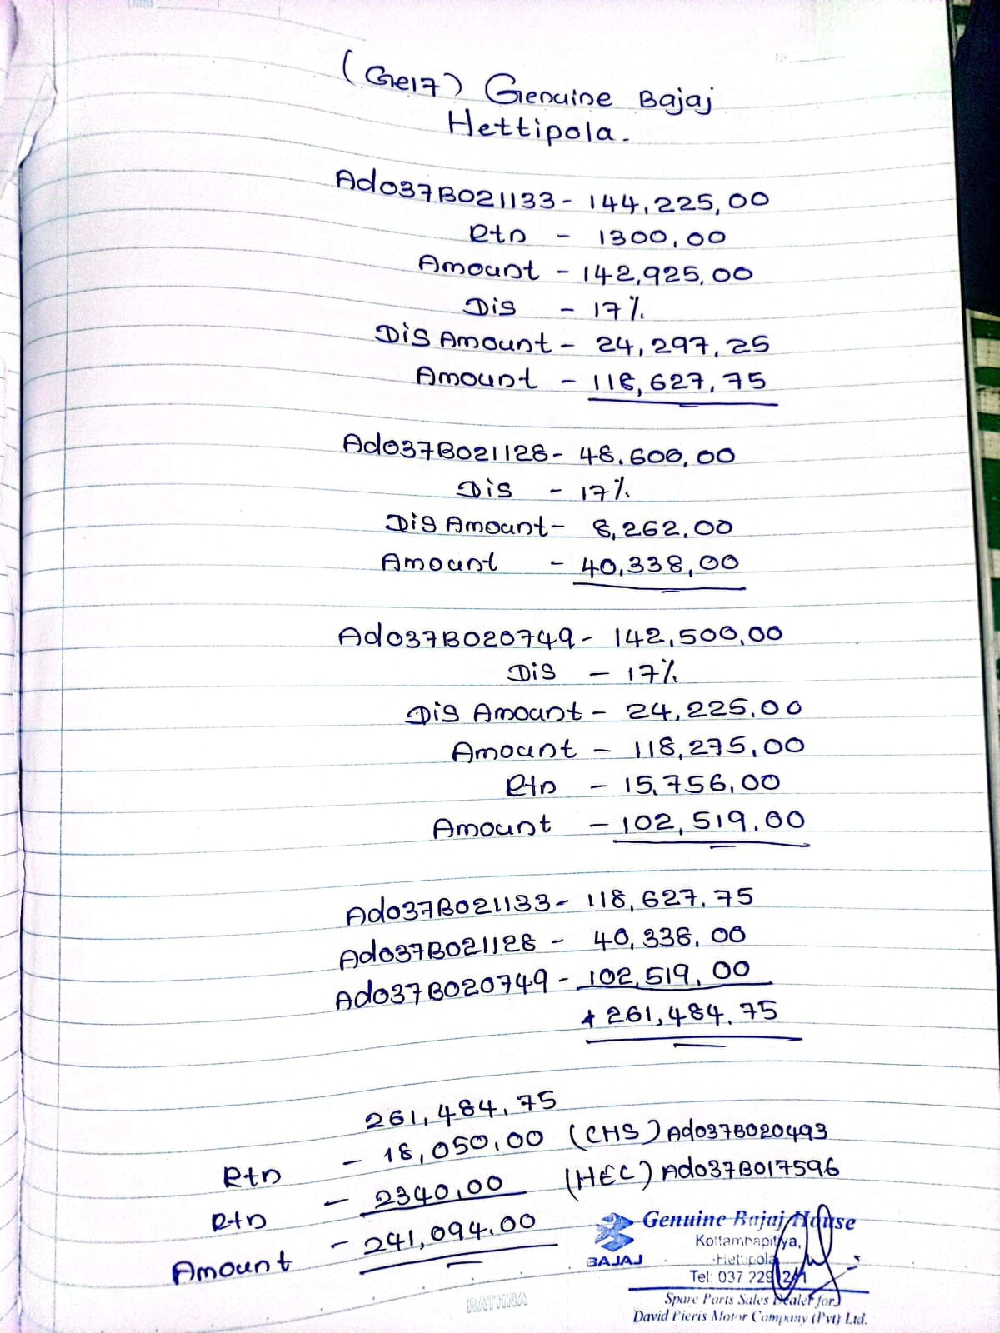 (Ge17) Genuine Bajaj
Hettipola.
Ado37B021133 - 144,225,00
Rtn - 1300,00
Amount - 142,925,00
Dis - 17%
Dis Amount - 24,297,25
Amount - 118,627,75
Ado37B021128 - 48,600,00
Dis - 17%
Dis Amount - 8,262,00
Amount - 40,338,00
Ado37B020749 - 142,500,00
Dis - 17%
Dis Amount - 24,225,00
Amount - 118,275,00
Rtn - 15,756,00
Amount - 102,519,00
Ado37B021133 - 118,627,75
Ado37B021128 - 40,338,00
Ado37B020749 - 102,519,00
+ 261,484,75
261,484,75
Rtn - 18,050,00 (CHS) Ado37B020493
Rtn - 2340,00 (HEC) Ado37B017596
Amount - 241,094,00
Genuine Bajaj House
Kottamhapitiya,
Hettipola
BAJAJ
Tel: 037 229
Spare Parts Sales Dealer for
David Pieris Motor Company (Pvt) Ltd.
RATHNA